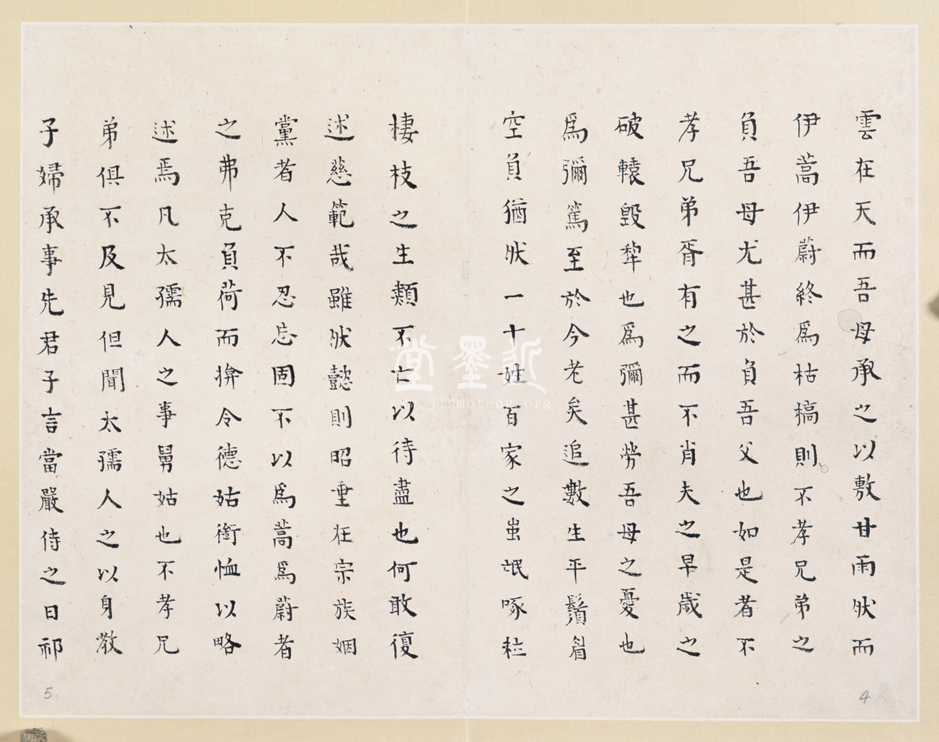 雲在天而吾母承之以敷甘雨然而
伊蒿伊蔚終為枯槁則不孝兄弟之
負吾母尤甚於負吾父也如是者不
孝兄弟胥有之而不肖夫之早歲之
破轅毀犂也爲彌甚勞吾母之憂也
爲彌篤至於今老矣追數生平鬚眉
空負猶然一十姓百家之蚩氓啄粒
棲枝之生類不亡以待盡也何敢復
述慈範哉雖然懿則昭垂在宗族姻
黨者人不忍忘固不以爲蒿爲蔚者
之弗克負荷而揜令德姑銜恤以略
述焉凡太孺人之事舅姑也不孝兄
弟俱不及見但聞太孺人之以身教
子婦承事先君子言當嚴侍之日祁
近墨堂
4
5